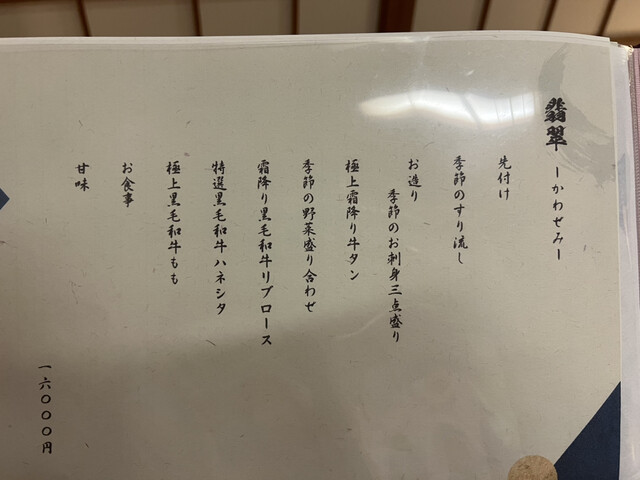 翡翠 ーかわせみー
先付け
季節のすり流し
お造り
季節のお刺身三点盛り
極上霜降り牛タン
季節の野菜盛り合わせ
霜降り黒毛和牛リブロース
特選黒毛和牛ハネシタ
極上黒毛和牛もも
お食事
甘味
一六〇〇〇円